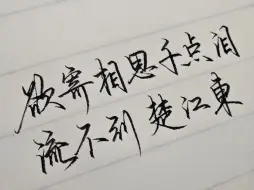 欲寄相思千点泪
流不到楚江東